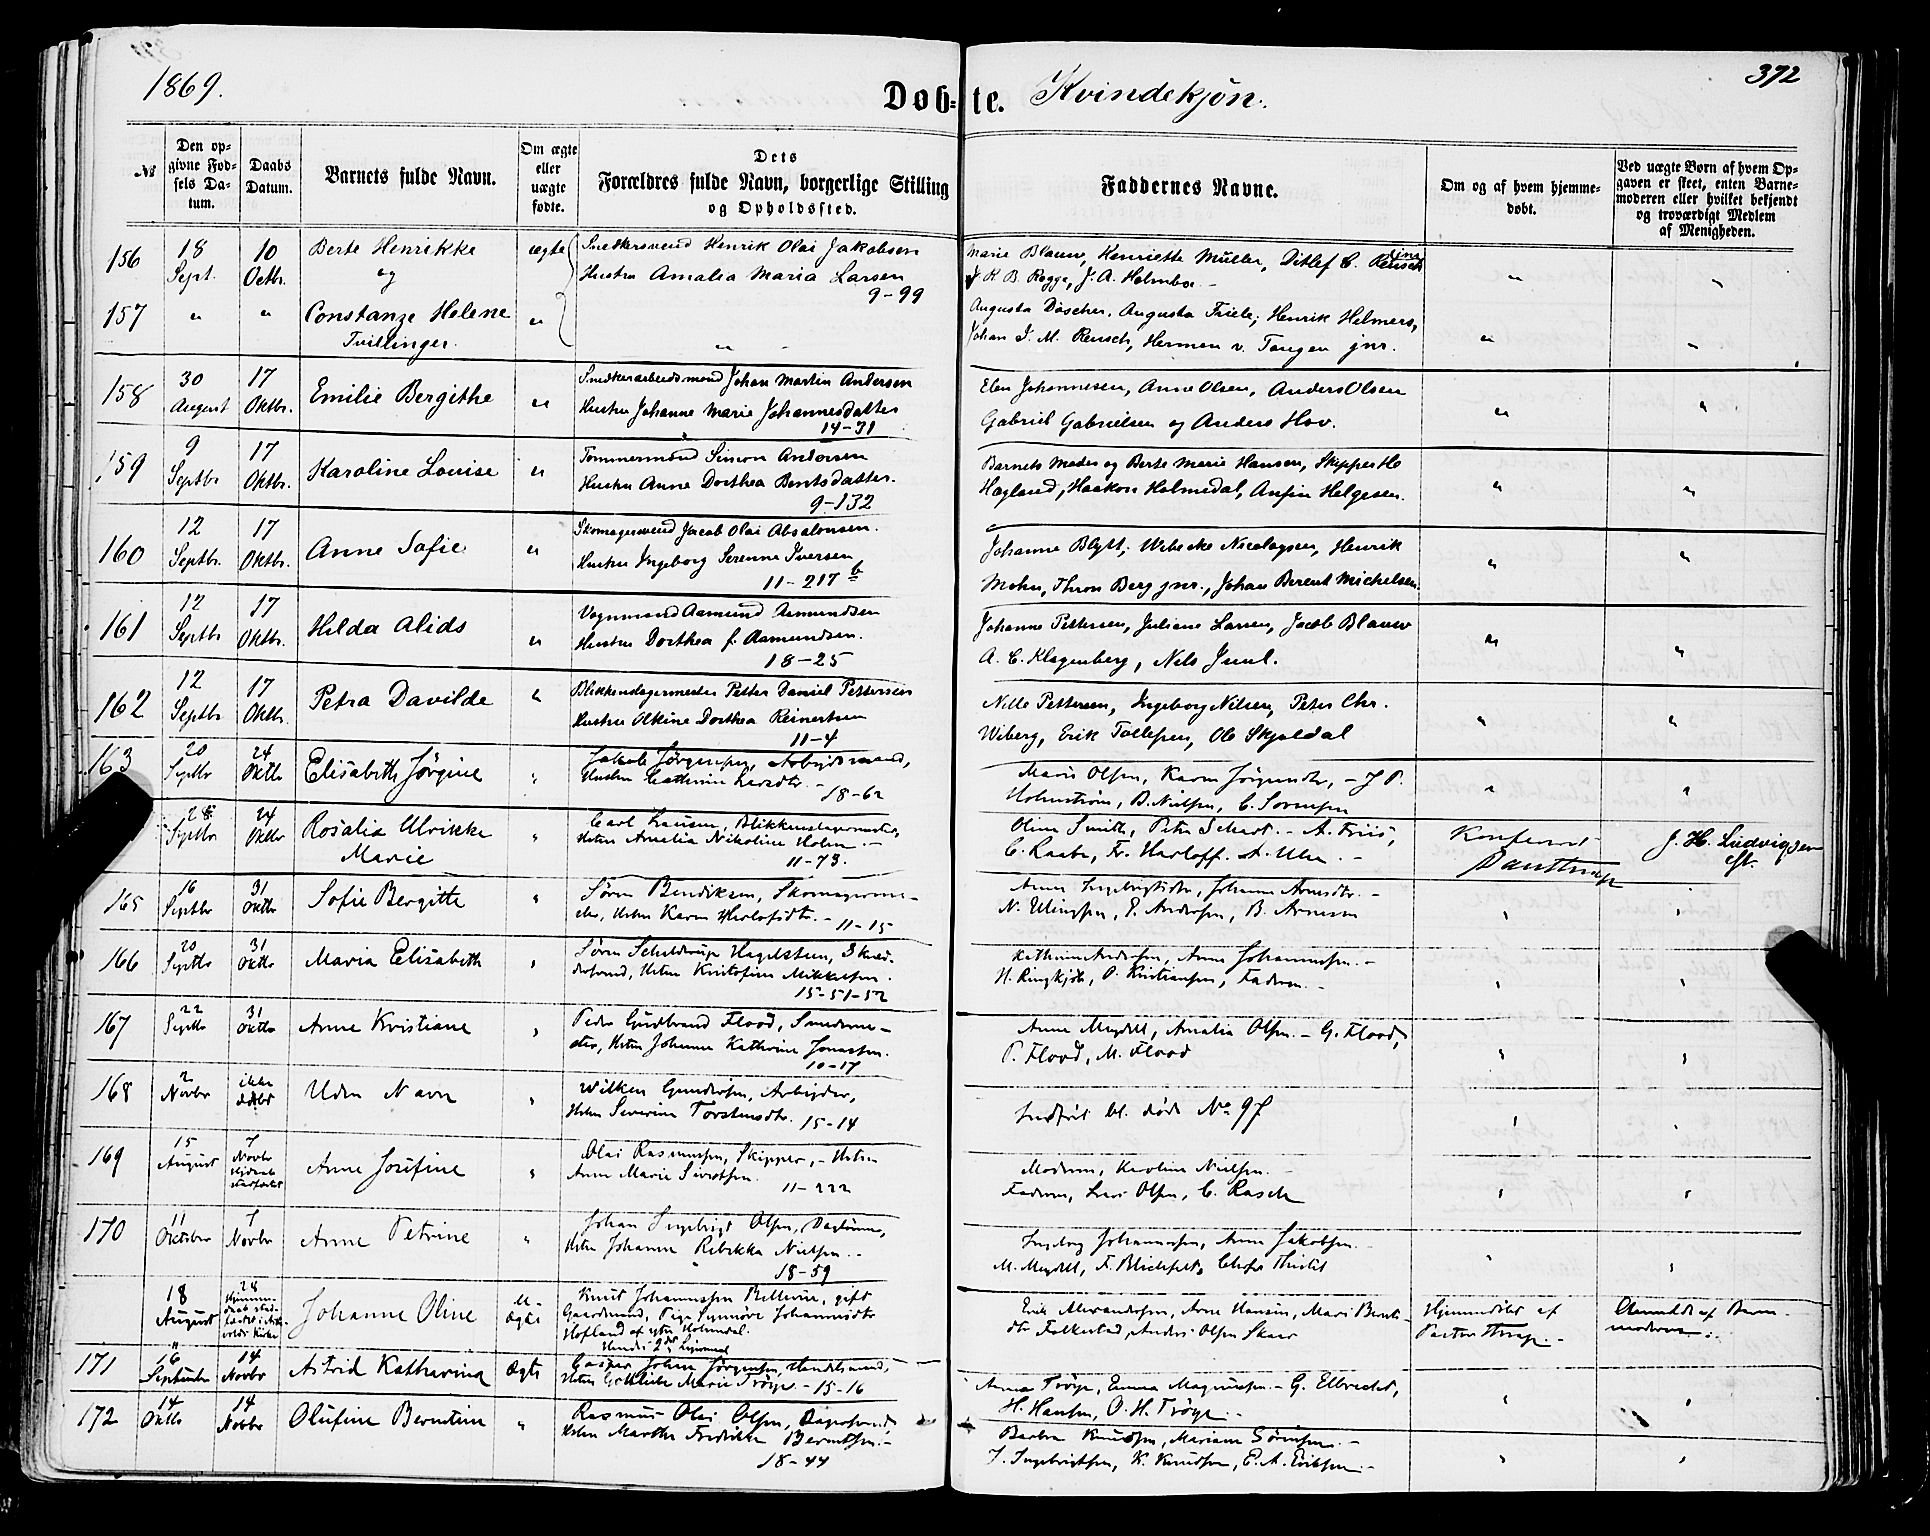 1869.
Døb-te. Kvindekjøn.
372
№
Den op-
givne Fød-
sels Da-
tum.
Daabs
Datum.
Barnets fulde Navn.
Om ægte
eller
uægte
fødte.
Dets
Forældres fulde Navn, borgerlige Stilling
og Opholdssted.
Faddernes Navne.
Om og af hvem hjemme-
døbt.
Ved uægte Børn af hvem Op-
gaven er skeet, enten Barne-
moderen eller hvilket bekjendt
og troværdigt Medlem
af Menigheden.
156 18 Sept. 10 Octbr. Berte Henrikke ægte Snedkersvend Henrik Olai Jakobsen
og Hustru Amalia Maria Larsen
9-99
Marie Blauw, Henriette Müller, Ditlef C. Rensch
J K B. Rogge, J. A. Holmboe -
157 " " Constanze Helene "
Tvillinger.
Augusta Döscher, Augusta Friele, Henrik Helmers,
Johan J. M. Rensch, Herman v. Tangen jnr.
158 30 August 17 Oktbr. Emilie Bergithe " Snedkerarbeidsmand Johan Martin Andersen
Hustru Johanne Marie Johannesdatter
14-31
Elen Johannesen, Anne Olsen, Anders Olsen
Gabriel Gabrielsen og Anders Hov.
159 9 Septbr 17 Oktbr. Karoline Louise " Tømmermand Simon Andersen
Hustru Anne Dorthea Berntsdatter.
9-132
Barnets Moder og Berte Marie Hansen, Skipper
Hagland, Haakon Holmedal, Anfin Helgesen.
160 12 Septbr. 17 Oktbr. Anne Sofie " Skomagersvend Jacob Olai Absalonsen.
Hustru Ingeborg Serenne Iversen
11-217 b
Johanne Blytt, Wibecke Nicolaysen, Henrik
Mohn, Thron Berg jnr., Johan Berent Michelsen.
161 12 Septbr. 17 Oktbr. Hilda Alids " Vognmand Aamund Aamundsen
Hustru Dorthea f. Aamundsen.
18-25
Johanne Pettersen, Juliane Larsen, Jacob Blauw
A. C. Klagenberg, Nils Juul.
162 12 Septbr 17 Oktbr. Petra Davilde " Blikkenslagermester Petter Daniel Pettersen
Hustru Olkine Dorthea Reinertsen
11-4
Nille Pettersen, Ingeborg Nilsen, Peter Chr.
Wiberg, Erik Tollefsen, Ole Skjoldal
163 20 Septbr 24 Oktbr Elisabeth Jørgine " Jakob Jørgensen, Arbeidsmand,
Hustru Cathrine Larsdtr. -
18-62
Marie Olsen, Karen Jørgensdtr, - J P.
Holmstrøm, B. Nielsen, C. Sørensen
28 Septbr 24 Oktbr Rosalia Ulrikke " Carl Hansen, Blikkenslagermester,
Marie Hstru Amalia Nikoline Holm -
11-73.
Oline Smith, Petra - A. Friis,
C. Raabe, Fr. Harloff. A. -
J. H. Ludvigsen
165 16 Septbr 31 Oktbr Sofie Bergitte " Søren Bendiksen, Skomagerme-
ster, Hstru Karen
11-15
Johanne Arnesdtr. -
N. P. Andersen, B. Arnesen
166 20 Septbr 31 Oktbr Maria Elisabeth " Søren Schelderup Hagelsteen,
Hstru Kristofine Mikkelsen.
15-51-52
Kathrine Andersen, Anne Johannessen. -
H. O. Kristiansen, Faderen. -
167 22 Septbr 31 Oktbr Anne Kristiane " Peder Gudbrand Flood, Smedeme-
ster, Hstru Johanne Kathrine Jonassen.
10-17
Anne Mygdell, Amalia Olsen. - G. Flood,
P. Flood, M. Flood
168 2 Novbr ikke døbt Uden Navn " Wilken Gundersen, Arbeider,
Hstru Severine Torstensdtr.
15-14
Indført bl. døde No 97
169 15 August 7 Novbr Anne Josefine " Olai Rasmussen, Skipper, - Hstru
Anne Marie Sivertsen.
11-222
Moderen, Karoline Nielsen. -
Faderen, Lars Olsen, C. Rasch
170 11 Oktober 7 Novbr Anne Petrine " Johan Ingebrigt Olsen,
Hstru Johanne Rebekka Nielsen. -
18-59
Ingeborg Johannessen, Anne Jakobsen. -
M. Mygdell, F. Blichfeldt,
18 August 28 Johanne Oline U-ægte Knut Johannessen Bellevue, gift
Gaardmand, Pige Synnøve Johannesdtr
Hofland af ytre Holmedal.
Erik Alexandersen, Arne Hansen, Mari Bernts-
dtr Folkestad, Anders Olsen Skaar
Hjemmedøbt af
Pastor
Anmeldt af Barne-
moderen.
171 16 September 14 Novbr Astrid Katharina Ægte Casper Johan Jørgensen, Handelsmand,
Hstru Gotliebe Marie Trøye. - 15-16
Anna Trøye, Emma Magnussen. - G. Elbrecht,
H. Hansen, O. H. Trøye. -
172 14 Oktbr 14 Novbr Olufine Berntine " Rasmus Olai Olsen,
Hstru Marthe Fredrikke Berntsen. -
18-44
Barbra Knudsen, Mariane Sørensen. -
J. Ingebrigtsen, K. Knudsen, E. A. Eriksen. -